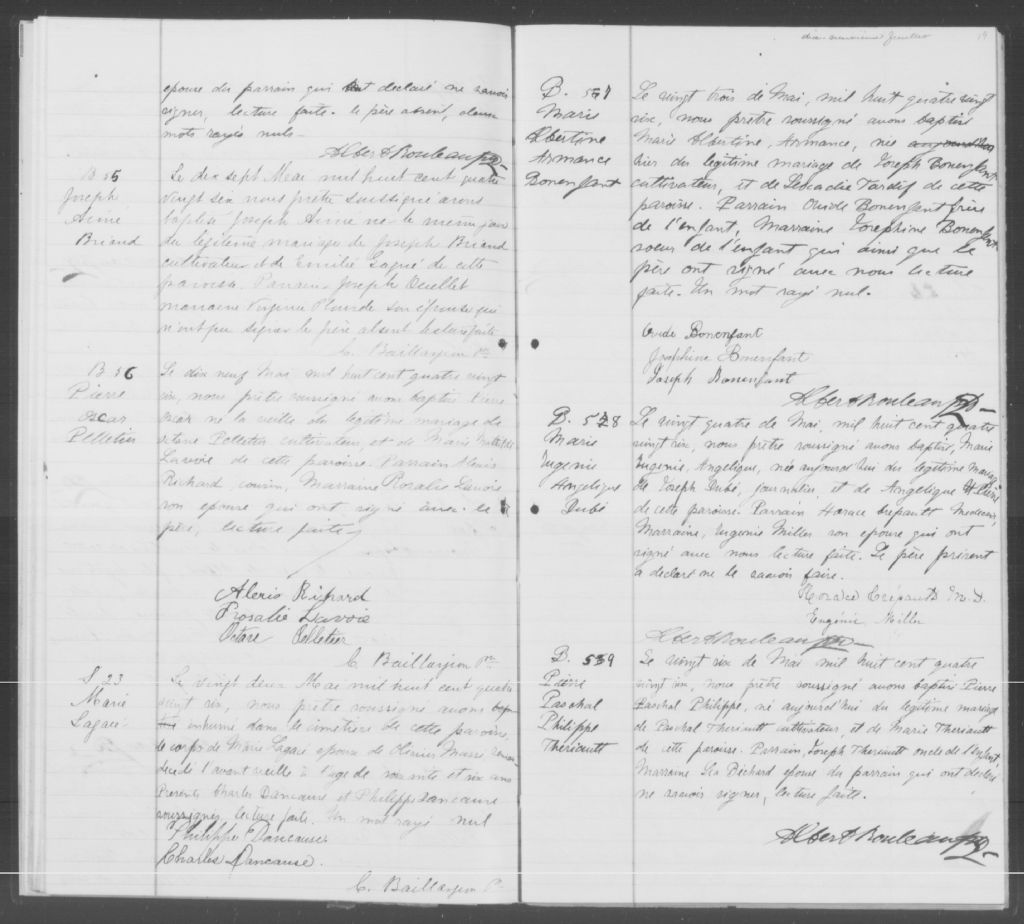 epouse du parrain qui ont declaré ne savoir
signer, lecture faite. le père absent, deux
mots rayés nuls.
Albert Rouleau ptre
B 55
Joseph
Aimé
Briand
Le dix sept Mai mil huit cent quatre
vingt six nous prêtre soussigné avons
baptisé Joseph Aimé né le même jour
du légitime mariage de Joseph Briand
cultivateur et de Emilie Lagacé de cette
paroisse. Parrain Joseph Ouellet
marraine Virginie Plourde son épouse qui
n'ont pu signer le père absent lecture faite
C. Baillargeon Ptre
B 56
Pierre
Oscar
Pelletier
Le dix neuf Mai mil huit cent quatre vingt
six, nous prêtre soussigné avons baptisé Pierre
Oscar né la veille du légitime mariage de
Octave Pelletier cultivateur, et de Marie
Lavoie de cette paroisse. Parrain Alexis
Richard, cousin, Marraine Rosalie Lavoie
son epouse qui ont signé avec le
père, lecture faite
Alexis Richard
Rosalie Lavoie
Octave Pelletier
C. Baillargeon Ptre
S 23
Marie
Lagacé
Le vingt deux Mai mil huit cent quatre
vingt six, nous prêtre soussigné avons
inhumé dans le cimetière de cette paroisse,
le corps de Marie Lagacé epouse de
décédé l'avant veille à l'age de soixante et six ans
Presents Charles Dancause et Philippe Dancause
soussignés, lecture faite. Un mot rayé nul
Philippe Dancause
Charles Dancause.
C. Baillargeon Ptre
dix-neuvième feuillet
19
B. 57
Marie
Albertine
Armance
Bonenfant
Le vingt trois de Mai, mil huit quatre vingt
six, nous prêtre soussigné avons baptisé
Marie Albertine, Armance, née aujourd'hui
hier du légitime mariage de Joseph Bonenfant
cultivateur, et de Léocadie Tardif de cette
paroisse. Parrain Ovide Bonenfant frère
de l'enfant, Marraine Josephine Bonenfant
soeur de l'enfant qui ainsi que le
père ont signé avec nous lecture
faite. Un mot rayé nul.
Ovide Bonenfant
Joséphine Bonenfant
Joseph Bonenfant
Albert Rouleau ptre
B. 58
Marie
Eugenie
Angelique
Dubé
Le vingt quatre de Mai, mil huit cent quatre
vingt six, nous prêtre soussigné avons baptisé, Marie
Eugenie, Angelique, née aujourd'hui du légitime mariage
de Joseph Dubé, journalier, et de Angelique St Pierre
de cette paroisse. Parrain Horace Crépault Medecin,
Marraine, Eugenie Miller son epouse qui ont
signé avec nous lecture faite. Le père présent
a declaré ne le savoir faire.
Horace Crépault M.D.
Eugénie Miller
Albert Rouleau ptre
B. 59
Pierre
Paschal
Philippe
Theriault
Le vingt six de Mai mil huit cent quatre
vingt six, nous prêtre soussigné avons baptisé Pierre
Paschal Philippe, né aujourd'hui du légitime mariage
de Paschal Theriault cultivateur, et de Marie Theriault
de cette paroisse. Parrain, Joseph Theriault oncle de l'enfant,
Marraine Léa Béchard epouse du parrain qui ont declaré
ne savoir signer, lecture faite.
Albert Rouleau ptre